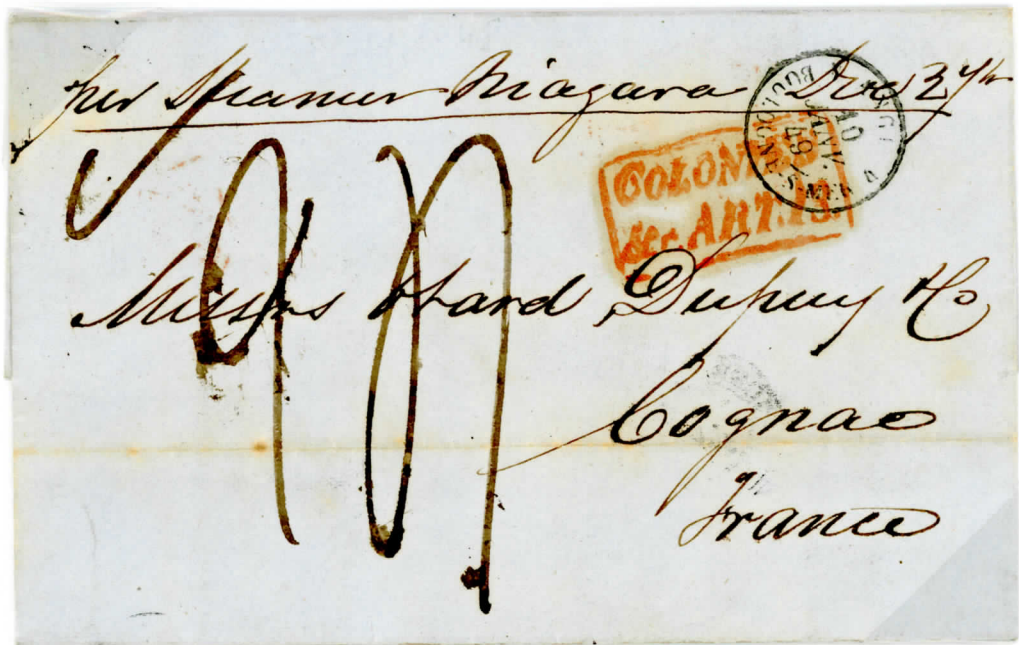 per Steamer Niagara Dec 27th
COLONIES
&c. ART. 13.
10
JANV.
49
BOULOGNE-S-MER
Messrs Otard Dupuy & Co
Cognac
France